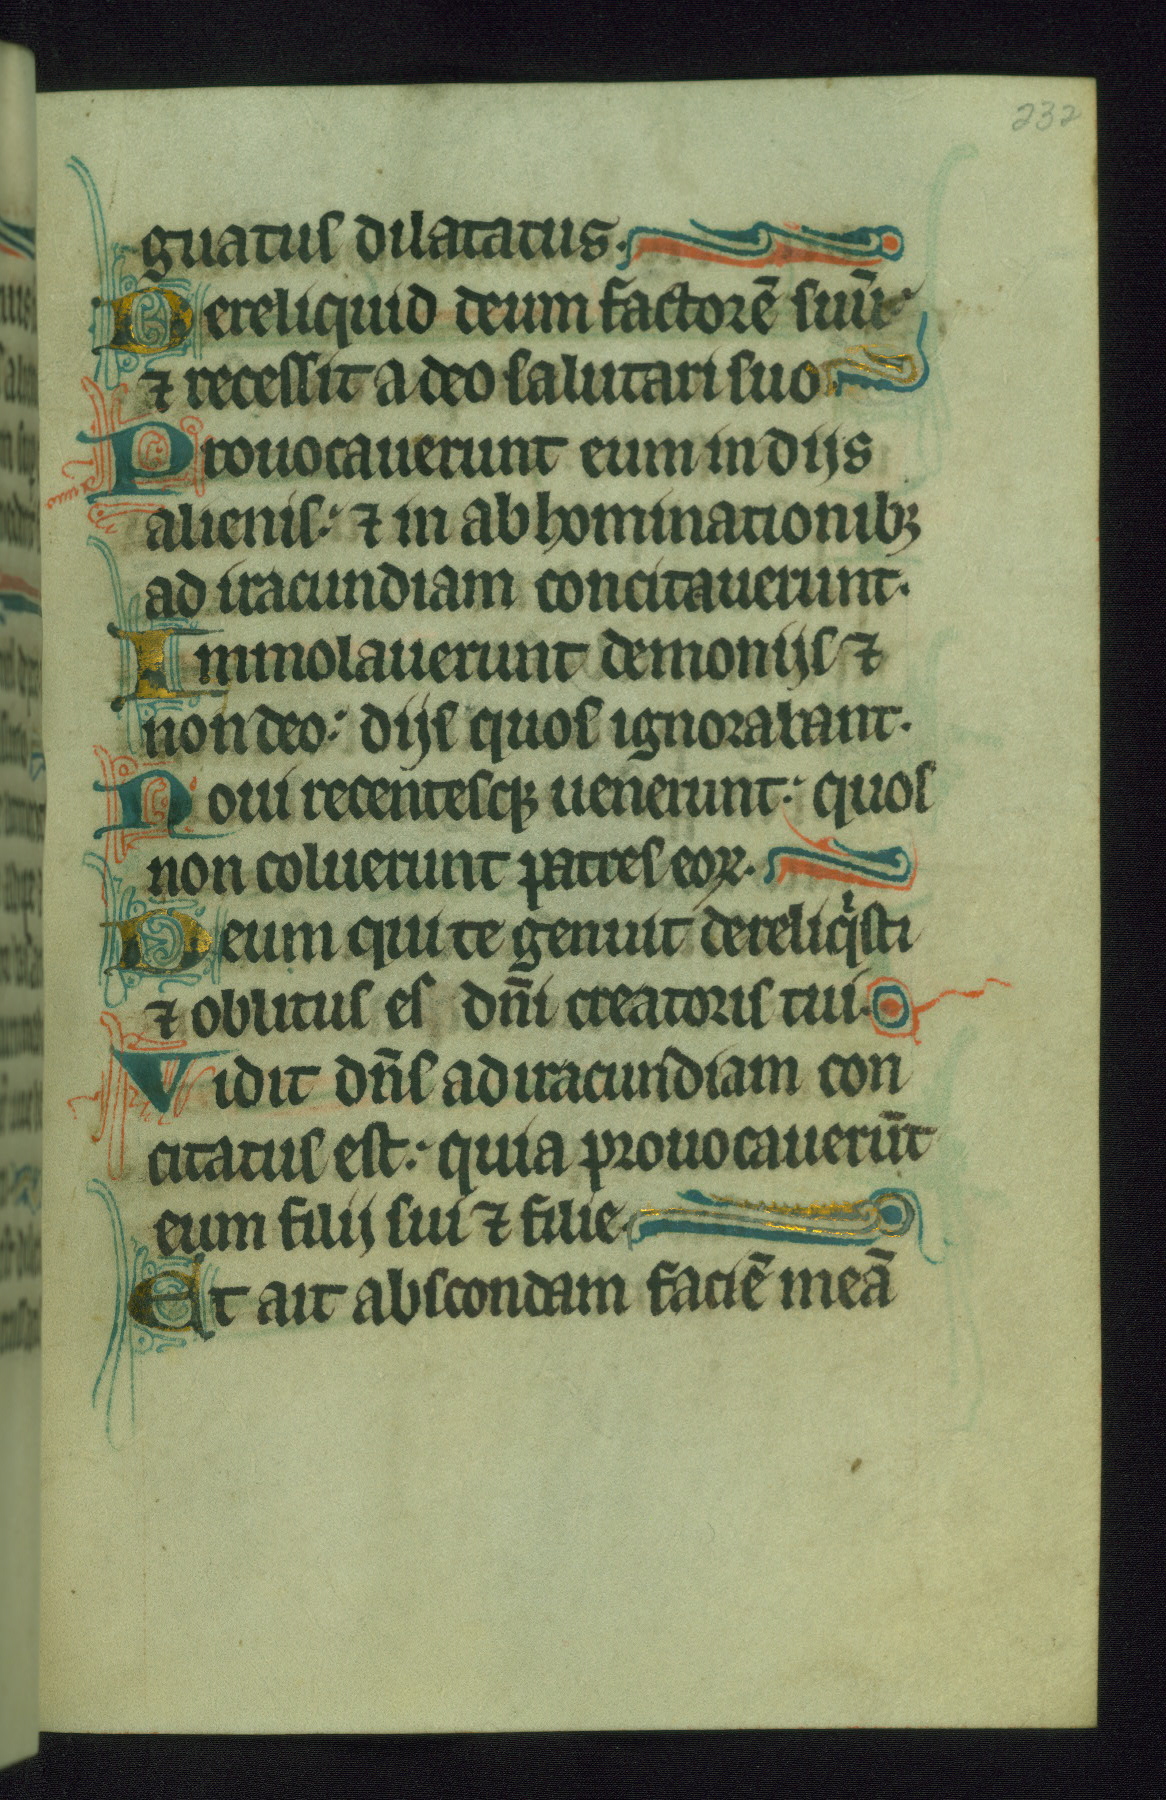 232
guatus dilatatus.
Dereliquid deum factorē suū:
⁊ recessit a deo salutari suo.
Prouocauerunt eum in dijs
alienis: ⁊ in abhominationibꝫ
ad iracundiam concitauerunt.
Immolauerunt demonijs ⁊
non deo: dijs quos ignorabant.
Noui recentesqꝫ uenerunt: quos
non coluerunt patres eoꝝ.
Deum qui te genuit dereliqͥsti
⁊ oblitus es dn̄i creatoris tui.
Vidit dn̄s ad iracundiam con
citatus est: quia prouocauerūt
eum filij sui ⁊ filie.
Et ait abscondam faciē meā